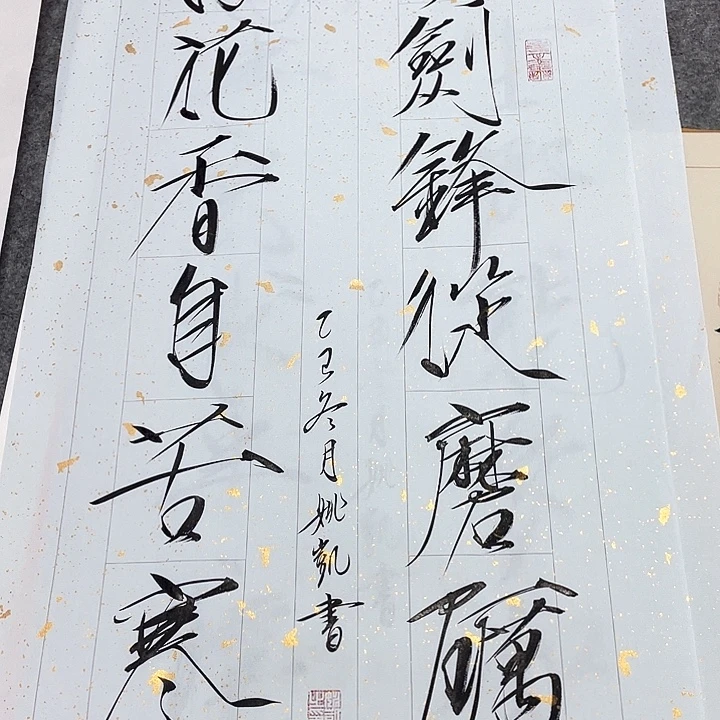 劍鋒從磨礪
花香自苦寒
乙巳冬月姚凱書